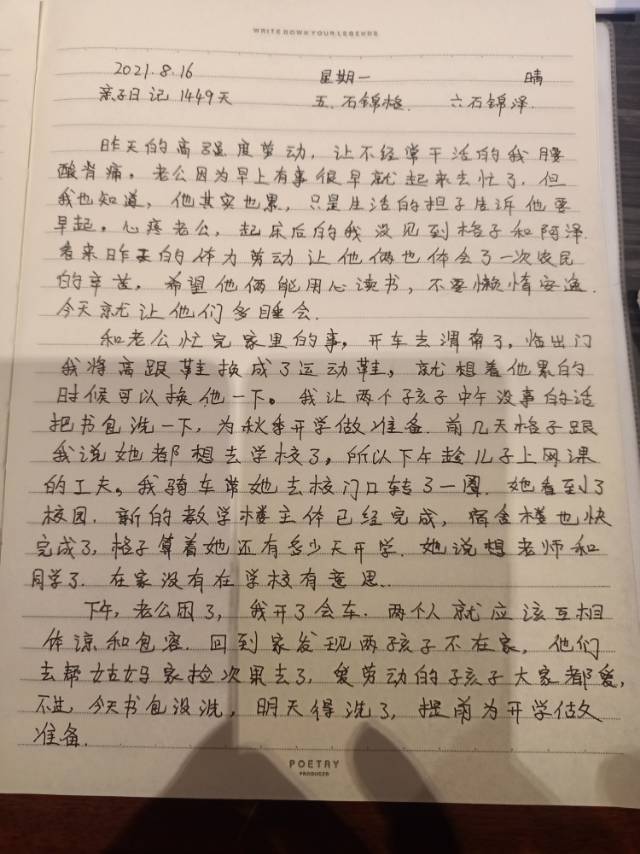 WRITE DOWN YOUR LEGENDS
2021.8.16 星期一 晴
亲子日记 1449天 五.石锦格. 六石锦泽.
昨天的高强度劳动，让不经常干活的我腰
酸背痛。老公因为早上有事很早就起来去忙了.但
我也知道，他其实也累，只是生活的担子告诉他要
早起。心疼老公，起床后的我没见到格子和阿泽.
看来昨天的体力劳动让他俩也体会了一次农民
的辛苦，希望他俩能用心读书，不要懒惰安逸.
今天就让他们多睡会.
和老公忙完家里的事，开车去渭南了，临出门
我将高跟鞋换成了运动鞋，就想着他累的
时候可以换他一下。我让两个孩子中午没事的话
把书包洗一下，为秋季开学做准备.前几天格子跟
我说她都想去学校了，所以下午趁儿子上网课
的工夫，我骑车带她去校门口转了一圈.她看到了
校园.新的教学楼主体已经完成，宿舍楼也快
完成了，格子算着她还有多少天开学.她说想老师和
同学了.在家没有在学校有意思..
下午，老公困了，我开了会车.两个人就应该互相
体谅和包容.回到家发现两孩子不在家，他们
去帮姑妈家捡次果去了，爱劳动的孩子大家都爱，
不过今天书包没洗，明天得洗了，提前为开学做
准备.
POETRY
PRODUCER